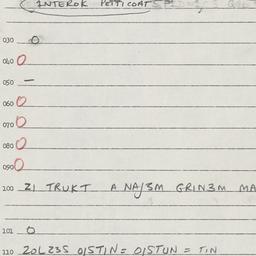 INTEROK PETTICOAT
030 O
040 O
050 —
060 O
070 O
080 O
090 O
100 ZI TRUKT A NA/3M GRIN3M MA
101 O
110 20L23S O/STIN = O/STUN = TIN